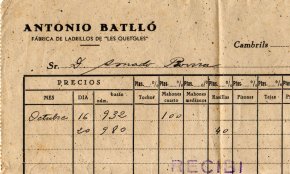 ANTONIO BATLLÓ
FÁBRICA DE LADRILLOS DE "LES QUETGLES"
Cambrils
Sr. D.
PRECIOS Ptas. º/º Ptas. º/º Ptas. º/º Ptas. º/º Ptas. º/º Ptas. º/º
MES DIA bulto núm. Tochos Mahones cuarto Mahones medianos Rasillas Piezas Tejas
Octubre 16 932 100
20 980 40
RECIBI